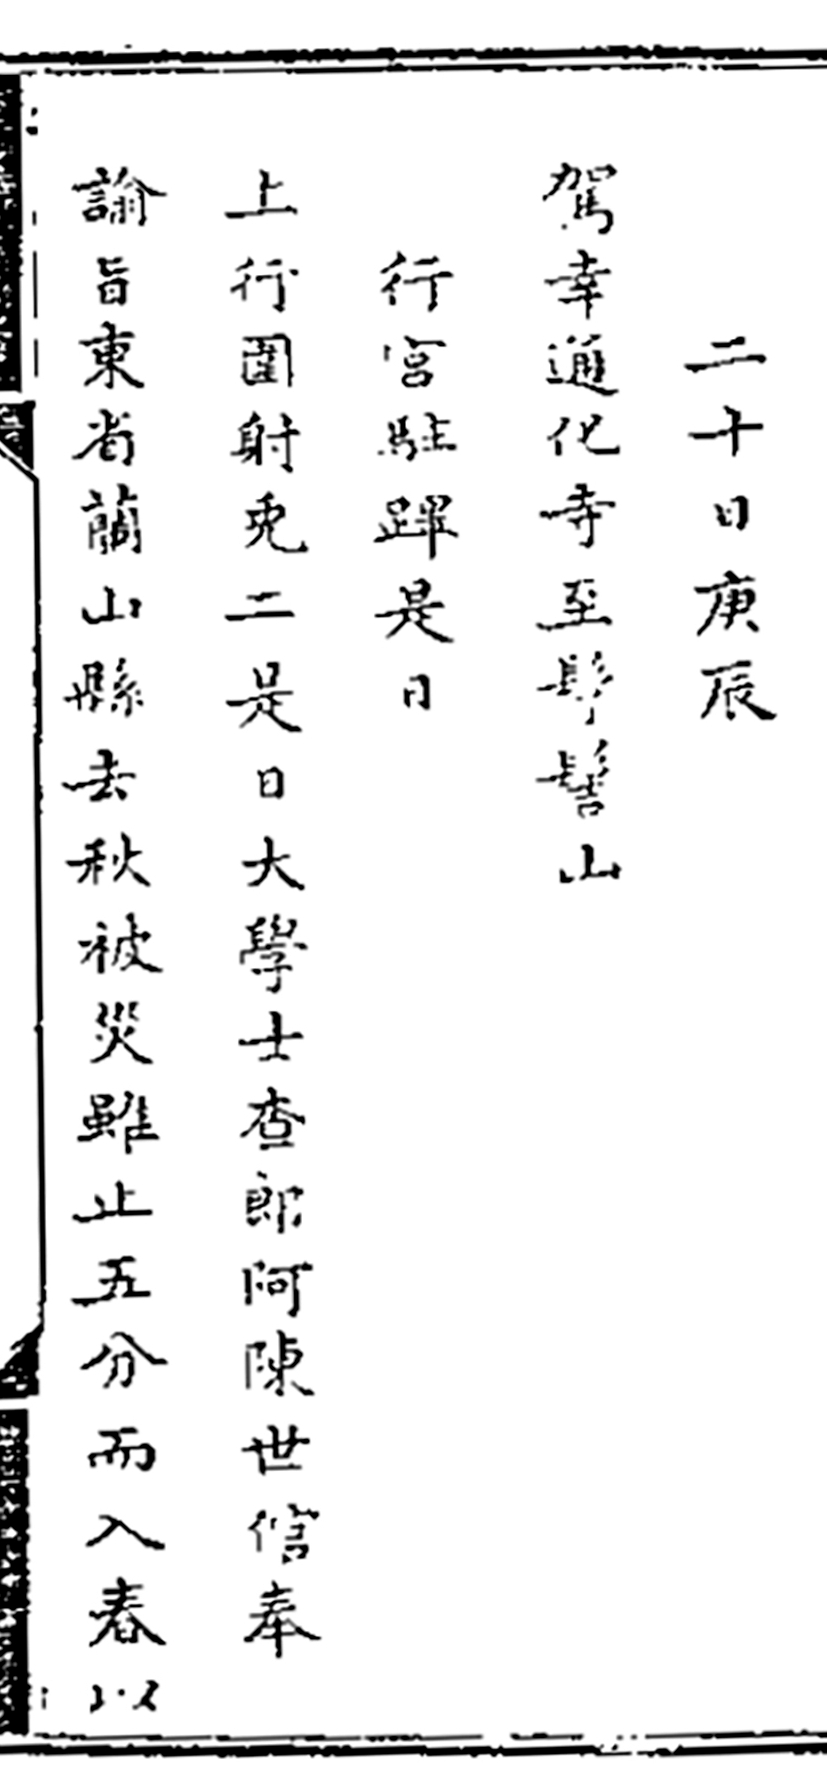 二十日庚辰
駕幸通化寺至髣髻山
行宮駐蹕是日
上行圍射兎二是日大學士查郎阿陳世倌奉
諭旨東省蘭山縣去秋被災雖止五分而入春